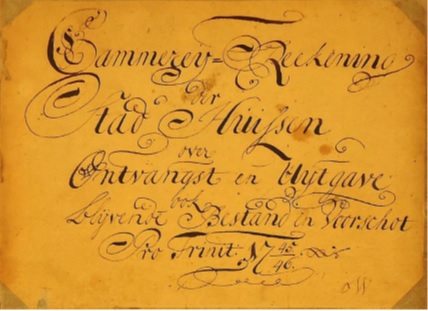 Cammerey=Reekening
der
Stad Huissen
over
Ontvangst en Uÿtgave
bok
blÿvende Bestand en Voorschot
Pro Trinit. 17 45/46.